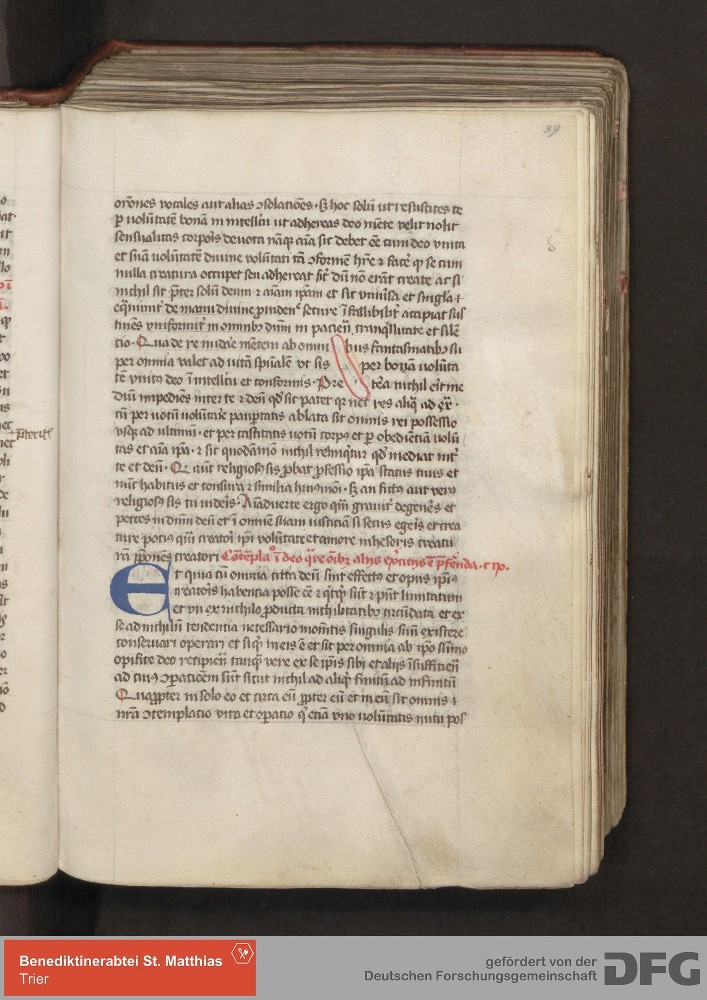 39
orōnes vocales aut alias ↄsolatiōes · sꝫ hoc solū ut resuscites te
ꝑ volūtatē bonā in intellcū ut adhereas deo mēte velit nolit
sensualitas corpōis deuota nāqꝫ aīa sic debet eē cum deo vnita
et suā volūtatē diuine volūtati ita ↄformē
nulla creatura occupet seu adhereat sic dū nō erāt create ac si
nichil sit p̄ter solū deum et aīam ipam et sic vniūsa et singla
de manu diuine secure ī accipiat sus
tinēs vniformit in omnibꝰ dnm in pacien tranqllitate et silē
cio · Qua de re nudae mētem ab omni bus fantasmatibꝰ si
per omnia valet ad vitā spūalē vt sis per bonam volūta
tē vnitus deo ī intellcu et conformis · Pre terea nichil erit me
diū impediēs inter te et deū qd sic patet qr nec res aliq ad ex
tra per votū volūtarie paupertatis ablata sit omnis rei possessio
vsqꝫ ad vltimū · et per castitatis votū corpus et ꝑ obedienciā volū
tas et aīa ipa · et sic quodāmō nichil relinqtur qd mediat int
te et deū · Qr aut religiosus sis probat professio ipa status tuus et
nūc habitus et tonsura et similia huiusmōi · sꝫ an fictus aut verꝰ
religiosus sis tu videris · Aīaduerte ergo qm grauit degenēs et
pecces in dnm deū et ī omnē suam iusticiā si secus egeis et crea
ture potius qm creatoi ipi volūtate et amore inheseris creatu
rā p̄ponēs creatori Cōtēpla° ī deo qre oībꝫ alijs exercicijs ē p̄ferēda · c IIo ·
Et quia cū omnia citra deū sint effectus et opus ipiꝰ
creatoris habencia posse eē et qcqd sūt et pn̄t limitatum
et vti ex nichilo producta nichilitatibꝰ circūdata et ex
se ad nichilū tendentia necessario momētis singulis suū existere
conseruari operari et si qd in eis ē et sit per omnia ab ipo sūmo
opifice deo recipien tanqm vere ex se ipis sibi et alijs īsufficien
ad cuiꝰ oꝑacionem sūt sicut nichil ad aliqd finitū ad infinitū
Quapropter in solo eo et circa eū propter eū et in eū sit omnis
nrā ↄtemplacio vita et oꝑatio qi etiā vno volūtatis nutu pos
Benediktinerabtei St. Matthias
Trier
gefördert von der
Deutschen Forschungsgemeinschaft
DFG